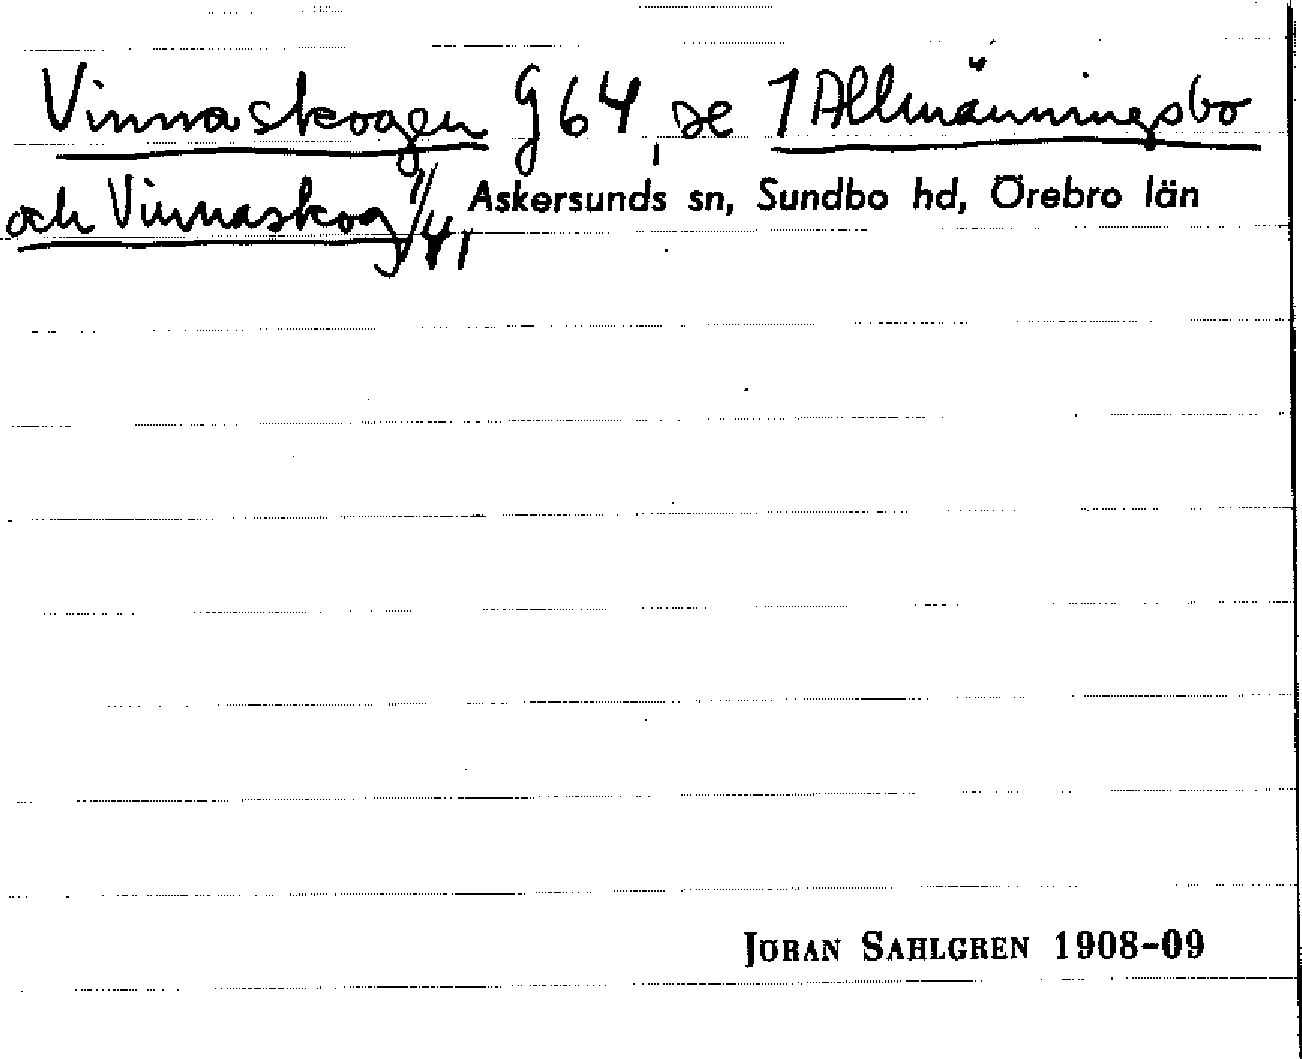 Vinnaskogen G64, se 1 Allmänningsbo
och Vinnaskog 1/41 Askersunds sn, Sundbo hd, Örebro län
JÖRAN SAHLGREN 1908-09